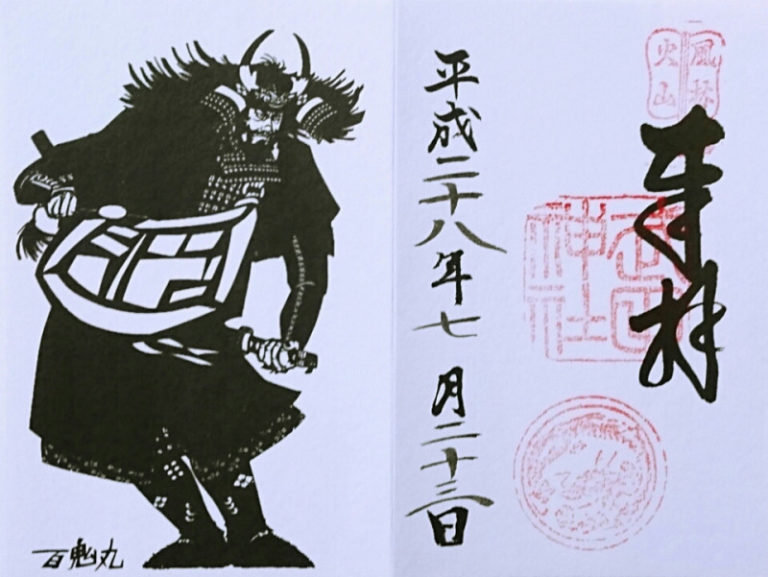 風林
火山
奉拝
武田
神社
平成二十八年七月二十三日
百鬼丸